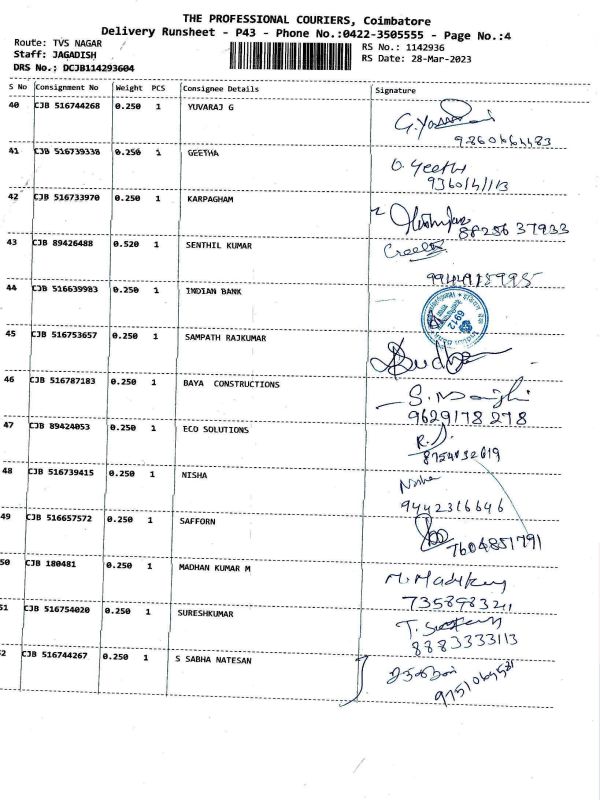 THE PROFESSIONAL COURIERS, Coimbatore
Delivery Runsheet - P43 - Phone No.:0422-3505555 - Page No.:4
Route: TVS NAGAR
RS No.: 1142936
Staff: JAGADISH
RS Date: 28-Mar-2023
DRS No.; DCJB114293604
S No Consignment No Weight PCS Consignee Details Signature
40 CJB 516744268 0.250 1 YUVARAJ G
41 CJB 516739338 0.250 1 GEETHA
G. Geetha
42 CJB 516733970 0.250 1 KARPAGHAM
88256 37933
43 CJB 89426488 0.520 1 SENTHIL KUMAR
44 CJB 516639983 0.250 1 INDIAN BANK
45 CJB 516753657 0.250 1 SAMPATH RAJKUMAR
Sudha
46 CJB 516787183 0.250 1 BAYA CONSTRUCTIONS
9629178278
47 CJB 89424053 0.250 1 ECO SOLUTIONS
8754032619
48 CJB 516739415 0.250 1 NISHA
Nisha
9442316646
49 CJB 516657572 0.250 1 SAFFORN
7604851791
50 CJB 180481 0.250 1 MADHAN KUMAR M
7358983211
51 CJB 516754020 0.250 1 SURESHKUMAR
8883333113
52 CJB 516744267 0.250 1 S SABHA NATESAN